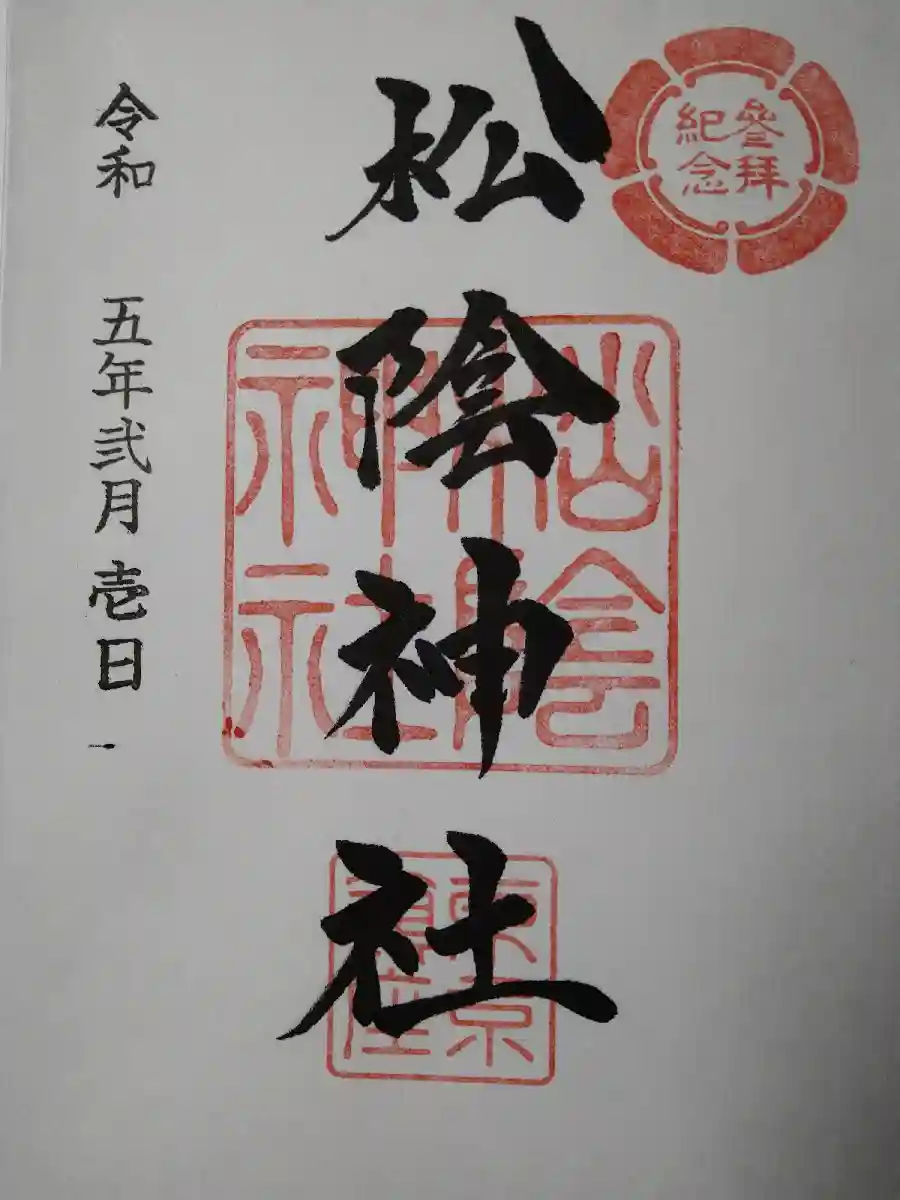 參拜
紀念
松陰神社
松陰
神社
東京
鎮座
令和 五年弐月壱日